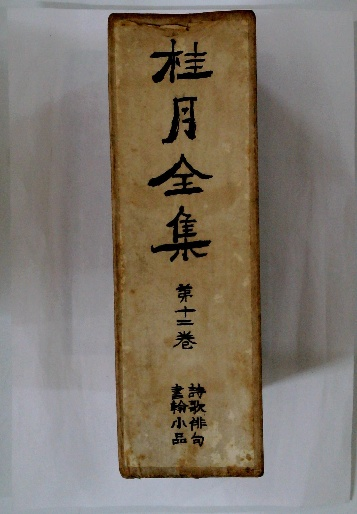 桂月全集
第十二巻
詩歌俳句
書翰小品